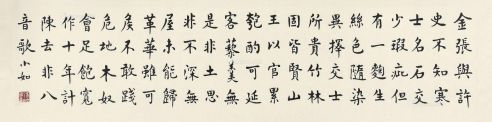 金張與許
史不知寒
士名石交
少瑕疵但
有一麴生
絲色隨染
異擇交士
所貴竹林
固皆賢山
王以官累
匏酌可延
客藜羹無
是非土思
非不深無
屋未能歸
革華雖可
矦不敢踐
危地木奴
會足飽寬
作十年計
陳去非八
音歌小如